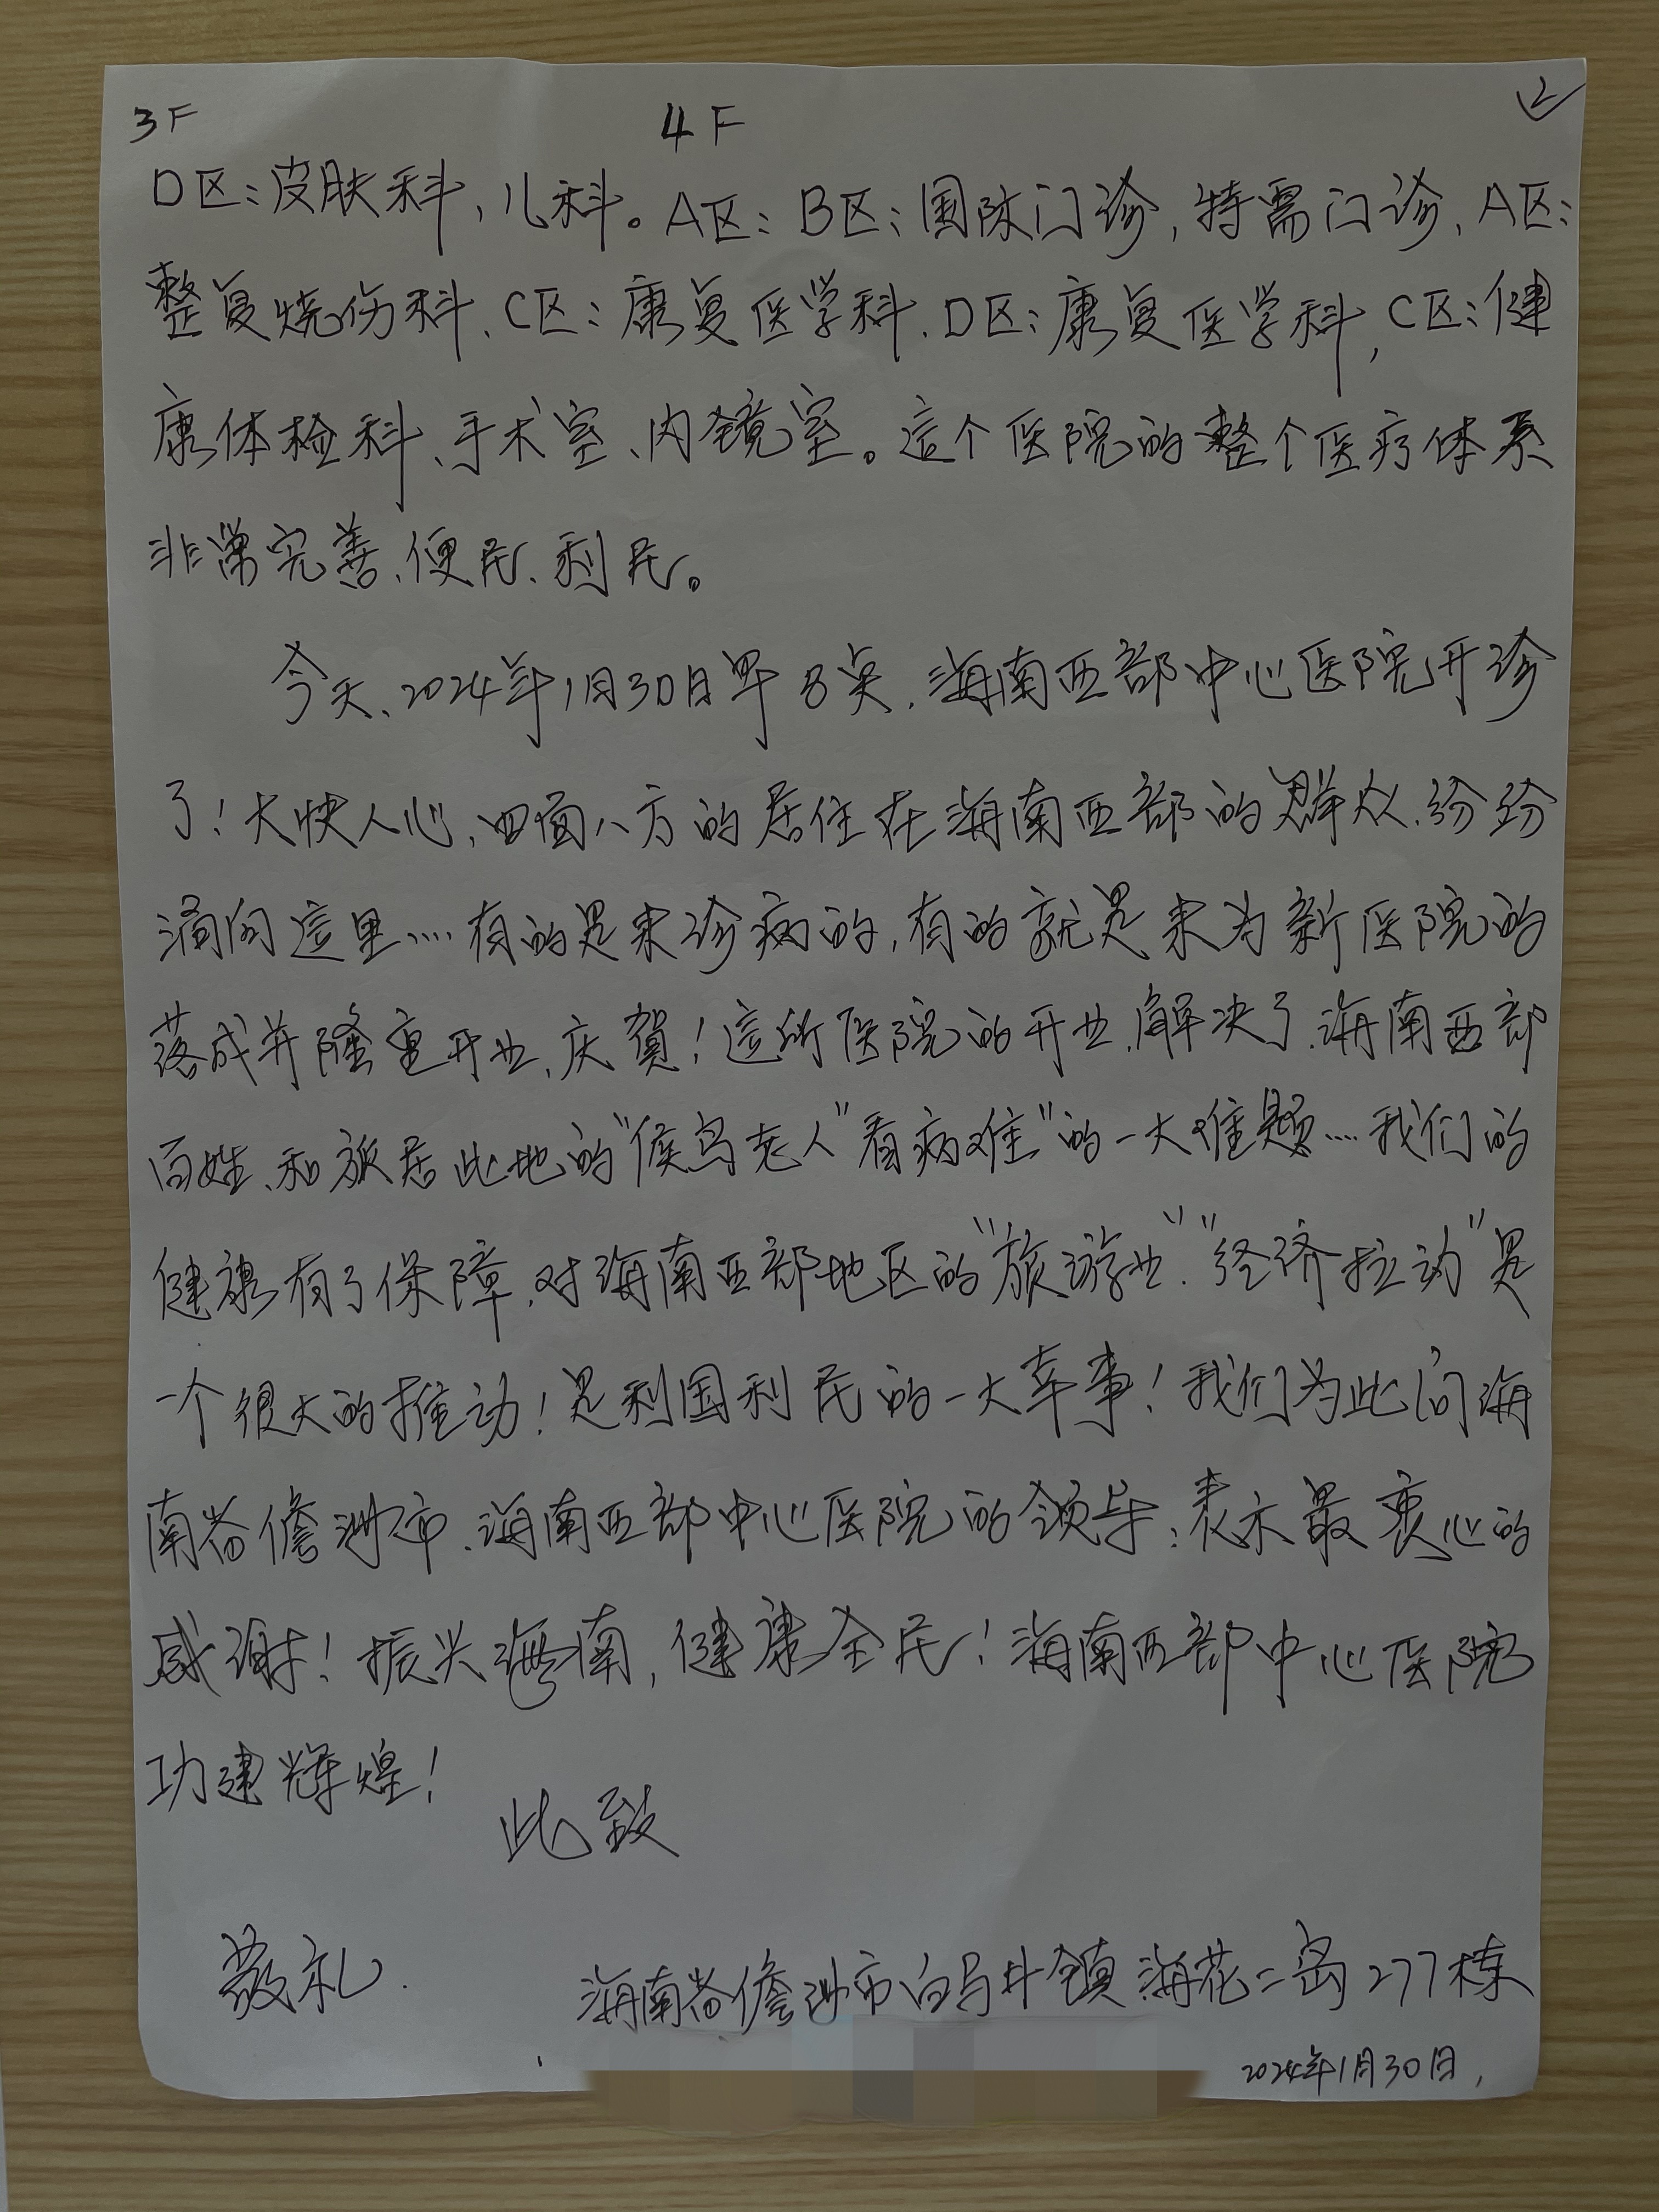 3F 4F 2
D区:皮肤科,儿科。A区:B区:国际门诊,特需门诊、A区:
整复烧伤科、C区:康复医学科、D区:康复医学科,C区:健
康体检科、手术室、内镜室。这个医院的整个医疗体系
非常完善、便民、利民。
今天、2024年1月30日早8点,海南西部中心医院开诊
了!大快人心,四面八方的居住在海南西部的群众,纷纷
涌向这里……有的是来诊病的,有的就是来为新医院的
落成并隆重开业、庆賀!这所医院的开业,解决了,海南西部
百姓、和旅居此地的“候鸟老人”看病难”的一大难题……我们的
健康有了保障,对海南西部地区的“旅游业”“经济拉动”是
一个很大的推动!是利国利民的一大幸事!我们为此向海
南省儋洲市、海南西部中心医院的领导:表示最衷心的
感谢!振兴海南,健康全民!海南西部中心医院
功建辉煌!
此致
敬礼.
海南省儋洲市白马井镇海花二岛277栋
2024年1月30日,